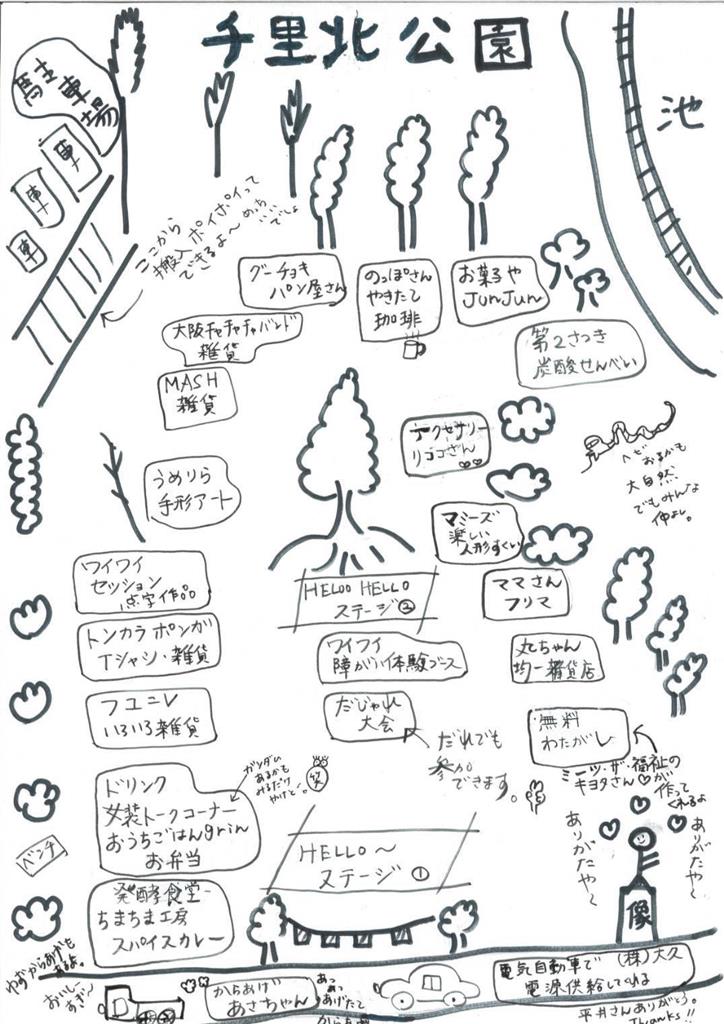 千里北公園
池
車
車
車
ここから
搬入ポイポイって
できるよ〜めっち
いいでしょ
グーチョキ
パン屋さん
のっぽさん
やきたて
珈琲
お菓子や
JunJun
大阪チャチャチャバンド
雑貨
第2さつき
炭酸せんべい
MASH
雑貨
アクセサリー
リゴゴさん
ヘビおるかも
大自然
でもみんな
仲よし。
うめりら
手形アート
マミーズ
楽しい
人形すくい
ワイワイ
セッション
点字作品
HELOO HELLO
ステージ②
ママさん
フリマ
トンカラポンガ
Tシャツ・雑貨
ワイワイ
障がい体験ブース
丸ちゃん
均一雑貨店
フユニレ
いろいろ雑貨
だじゃれ
大会
だれでも
参加
できます。
無料
わたがし
ミーツ・ザ・福祉の
キヨタさんが
作って
くれるよ
ドリンク
女装トークコーナー
おうちごはんgrin
お弁当
ガンダム
あるかも
みるだけ
やけど。
笑
HELLO〜
ステージ①
ありがたや〜
ありがたや〜
像
ベンチ
発酵食堂
ちまちま工房
スパイスカレー
ゆずからあげも
あるよ。
おいしー
すぎ〜
からあげ
あさちゃん
あつ
あつ
あげたて
からあ
電気自動車で(株)大久
電源供給してくれる
平井さんありがとう。
Thanks!!